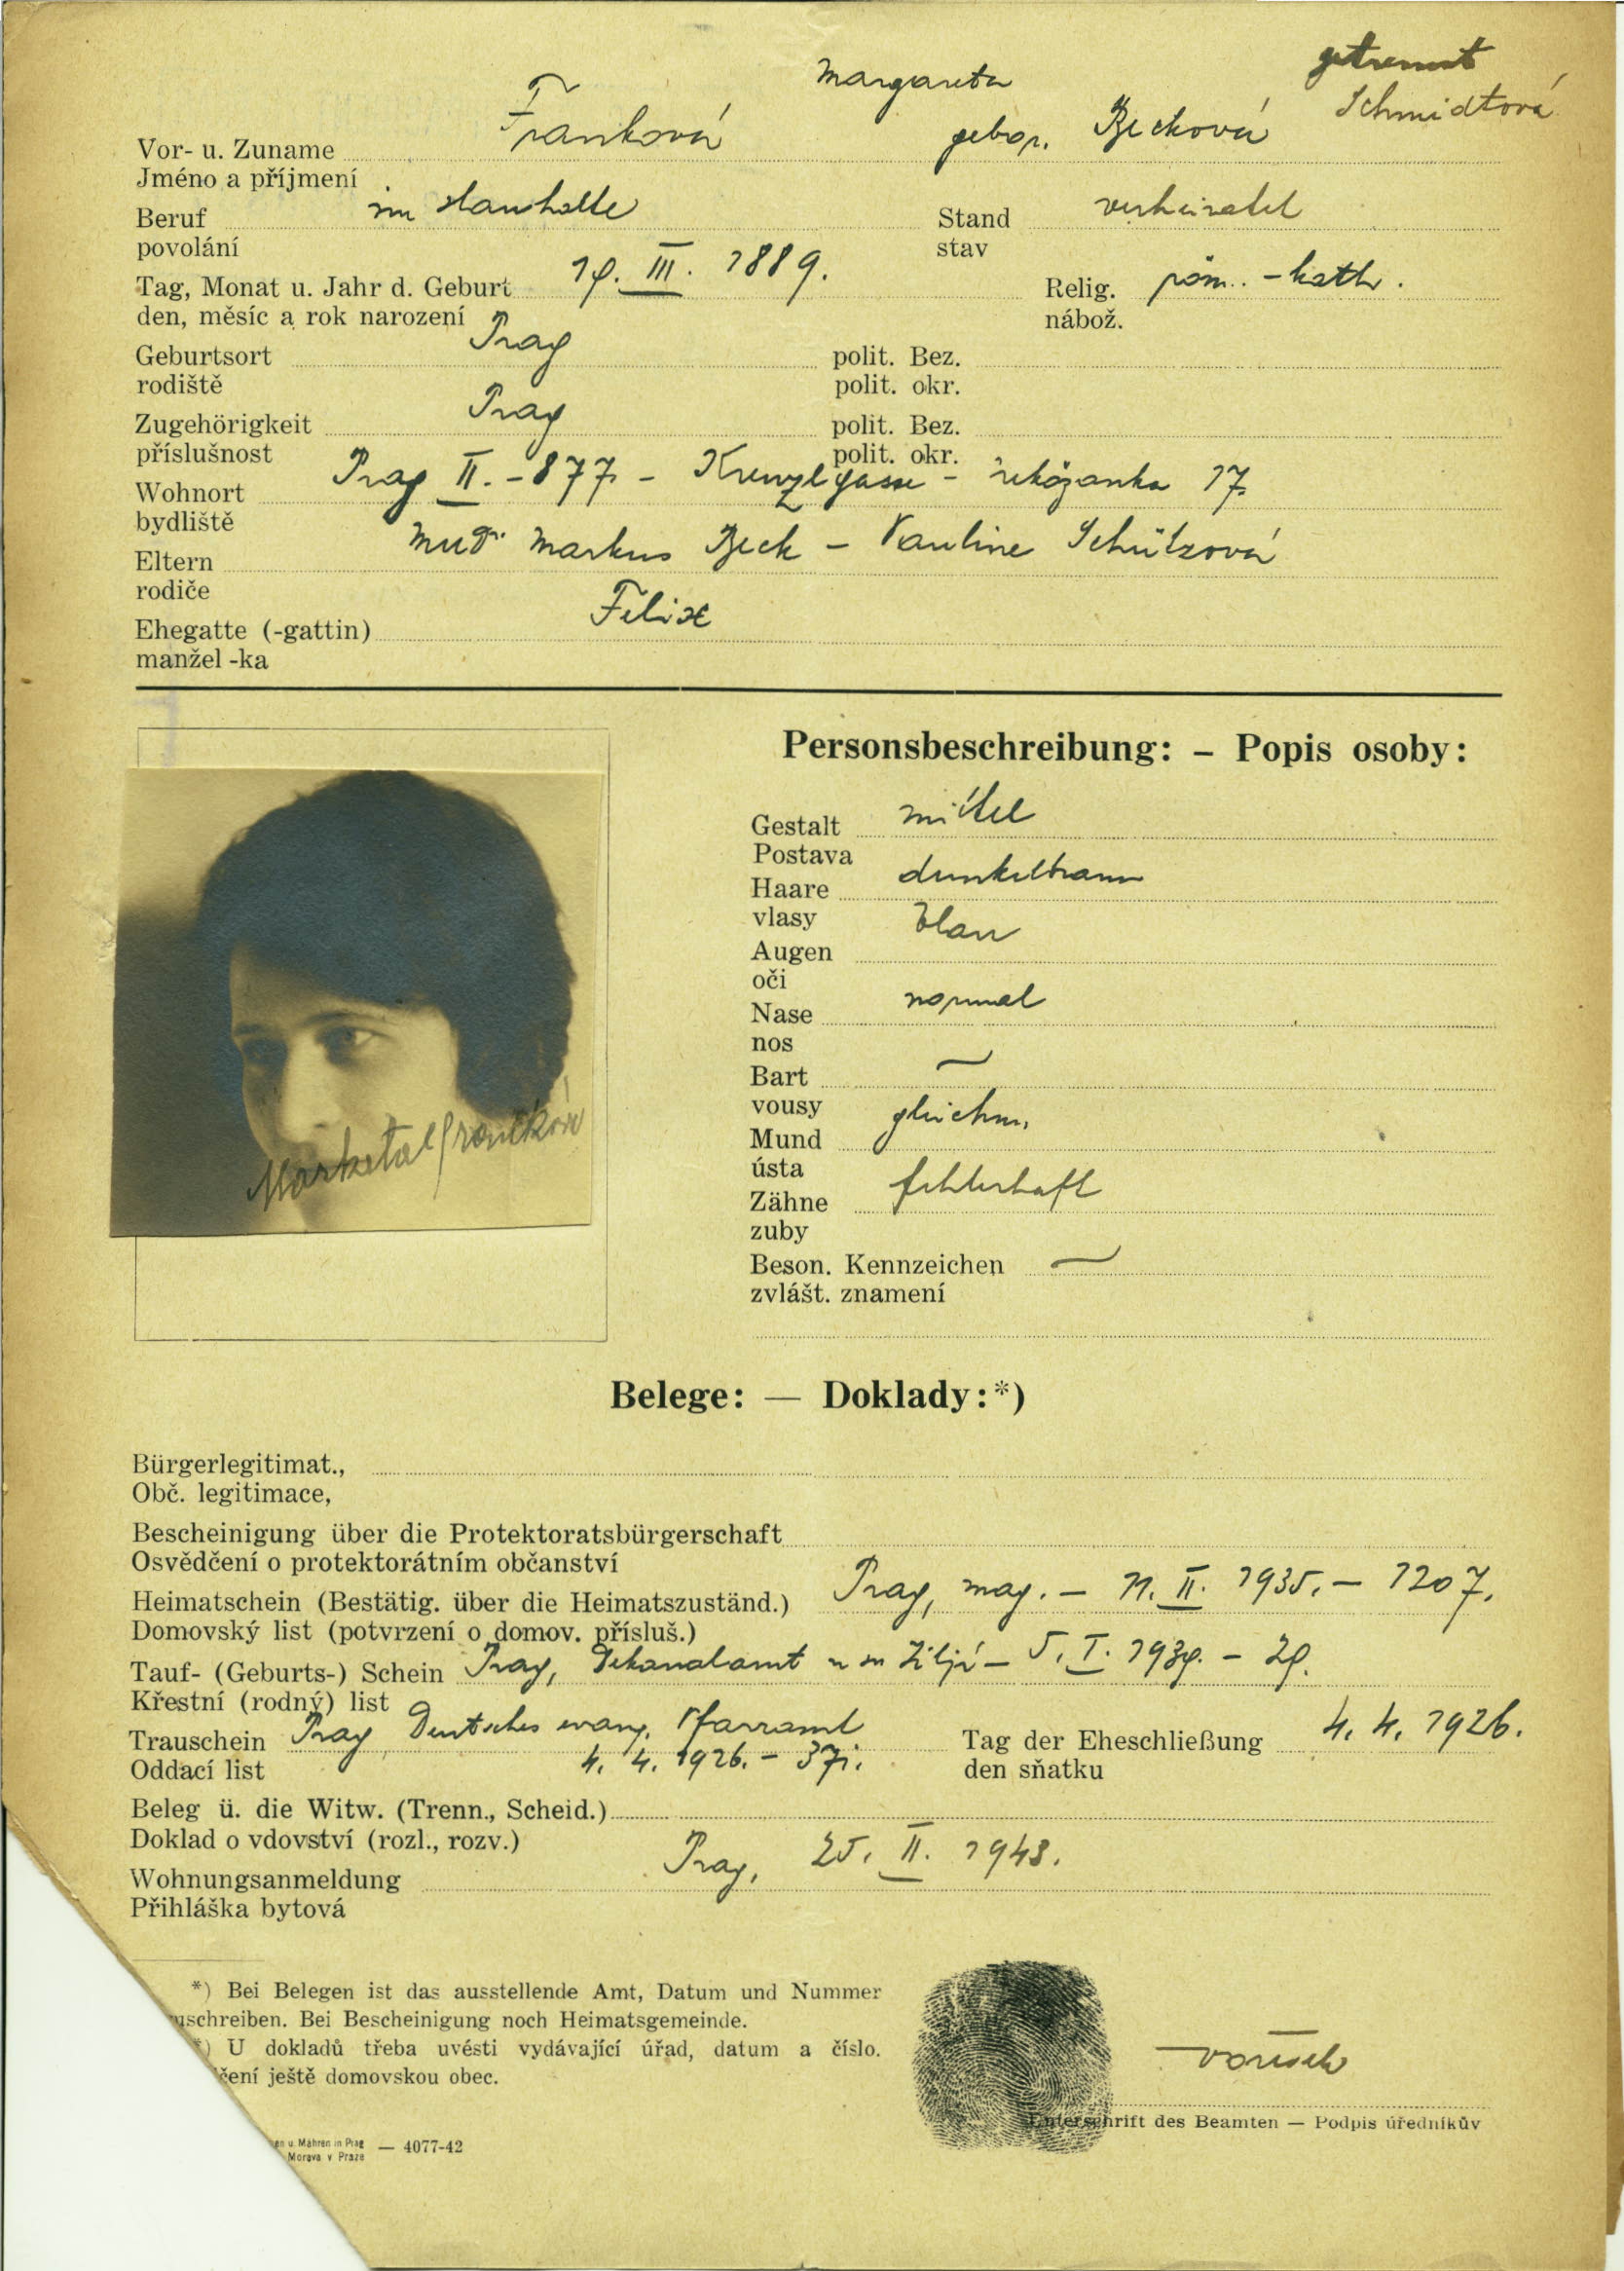 Margareta getrennt
Franková gebor. Becková Schmidtová
Vor- u. Zuname
Jméno a příjmení
Beruf im Haushalte Stand verheiratet
povolání stav
Tag, Monat u. Jahr d. Geburt III. 1889. Relig. röm. - kath.
den, měsíc a rok narození nábož.
Geburtsort Prag polit. Bez.
rodiště polit. okr.
Zugehörigkeit Prag polit. Bez.
příslušnost polit. okr.
Wohnort Prag II. - 877 - 17.
bydliště
Eltern MUDr Markus Beck - Pauline Schützová
rodiče
Ehegatte (-gattin) Felix
manžel -ka
Personsbeschreibung: – Popis osoby:
Gestalt mittel
Postava
Haare dunkelbraun
vlasy
Augen blau
oči
Nase normal
nos
Bart —
vousy
Mund gleichm.
ústa
Zähne fehlerhaft
zuby
Beson. Kennzeichen —
zvlášt. znamení
Marketa Franková
Belege: — Doklady:*)
Bürgerlegitimat.,
Obč. legitimace,
Bescheinigung über die Protektoratsbürgerschaft
Osvědčení o protektorátním občanství
Heimatschein (Bestätig. über die Heimatszuständ.) Prag, mag. - 11. II. 1935. - 1207.
Domovský list (potvrzení o domov. přísluš.)
Tauf- (Geburts-) Schein Prag, Dekanalamt - 5. I.
Křestní (rodný) list
Trauschein Prag Deutsches evang. Pfarramt Tag der Eheschließung 4. 4. 1926.
4. 4. 1926. -
Oddací list den sňatku
Beleg ü. die Witw. (Trenn., Scheid.)
Doklad o vdovství (rozl., rozv.)
Wohnungsanmeldung Prag, 25. II. 1943.
Přihláška bytová
*) Bei Belegen ist das ausstellende Amt, Datum und Nummer
uschreiben. Bei Bescheinigung noch Heimatsgemeinde.
*) U dokladů třeba uvésti vydávající úřad, datum a číslo.
čení ještě domovskou obec.
Unterschrift des Beamten — Podpis úředníkův
en u. Mähren in Prag
Morava v Praze — 4077-42